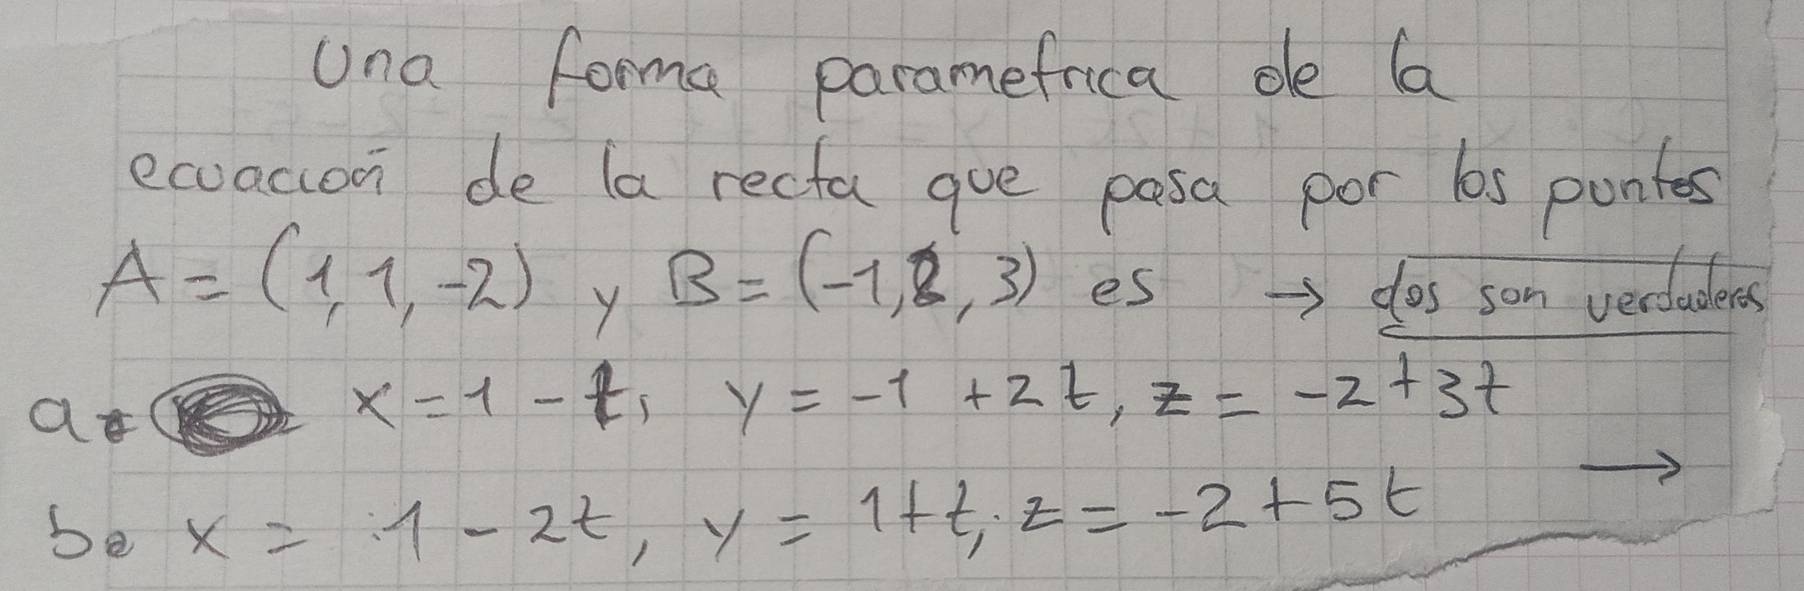 Una forma parametrica de la
ecuación de la recta que pasa por los puntos
A = (1, 1, -2) y B = (-1, 2, 3) es → dos son verdaderos
a. x = 1 - t, y = -1 + 2t, z = -2 + 3t
b. x = 1 - 2t, y = 1 + t, z = -2 + 5t →